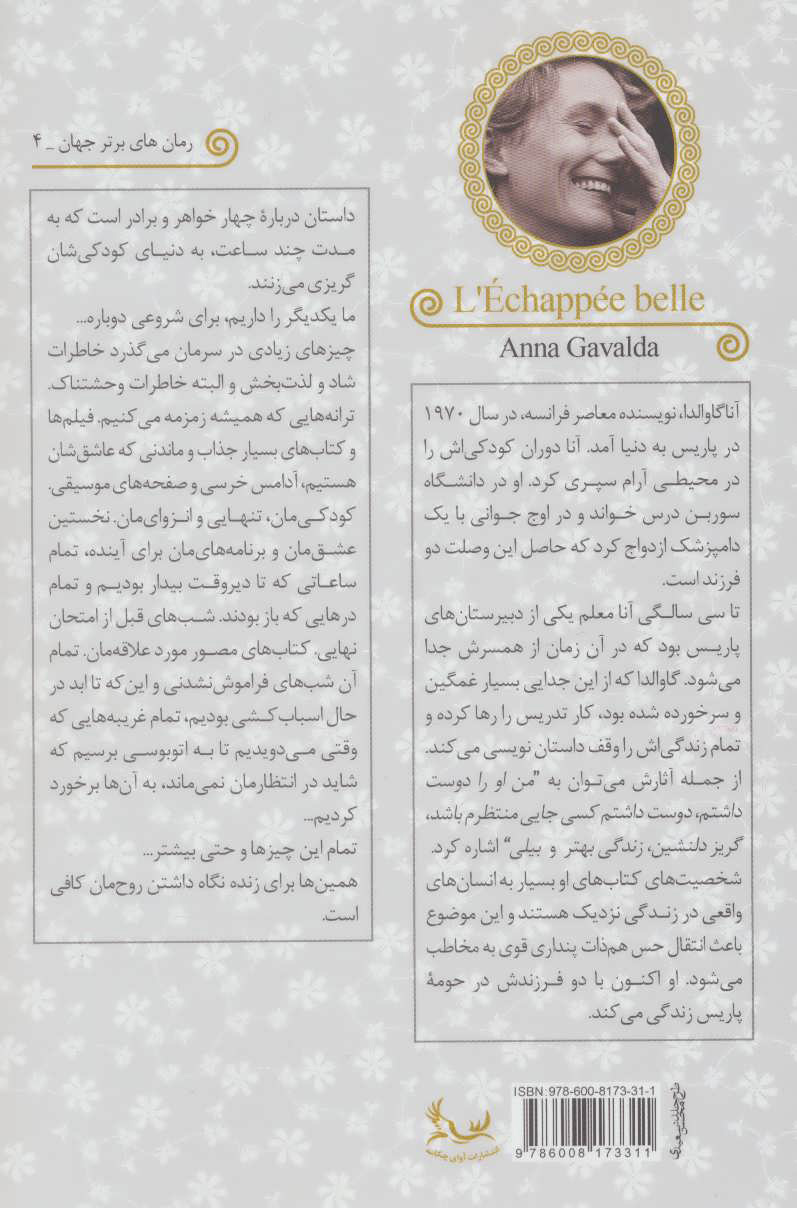 L'Échappée belle
Anna Gavalda
آنا گاوالدا، نویسنده معاصر فرانسه، در سال ۱۹۷۰
در پاریس به دنیا آمد. آنا دوران کودکی‌اش را
در محیطی آرام سپری کرد. او در دانشگاه
سوربن درس خواند و در اوج جوانی با یک
دامپزشک ازدواج کرد که حاصل این وصلت دو
فرزند است.
تا سی سالگی آنا معلم یکی از دبیرستان‌های
پاریس بود که در آن زمان از همسرش جدا
می‌شود. گاوالدا که از این جدایی بسیار غمگین
و سرخورده شده بود، کار تدریس را رها کرده و
تمام زندگی‌اش را وقف داستان نویسی می‌کند.
از جمله آثارش می‌توان به "من او را دوست
داشتم، دوست داشتم کسی جایی منتظرم باشد،
گریز دلنشین، زندگی بهتر و بیلی" اشاره کرد.
شخصیت‌های کتاب‌های او بسیار به انسان‌های
واقعی در زندگی نزدیک هستند و این موضوع
باعث انتقال حس هم‌ذات پنداری قوی به مخاطب
می‌شود. او اکنون با دو فرزندش در حومهٔ
پاریس زندگی می‌کند.
رمان های برتر جهان _ ۴
داستان دربارهٔ چهار خواهر و برادر است که به
مدت چند ساعت، به دنیای کودکی‌شان
گریزی می‌زنند.
ما یکدیگر را داریم، برای شروعی دوباره...
چیزهای زیادی در سرمان می‌گذرد خاطرات
شاد و لذت‌بخش و البته خاطرات وحشتناک.
ترانه‌هایی که همیشه زمزمه می‌کنیم. فیلم‌ها
و کتاب‌های بسیار جذاب و ماندنی که عاشق‌شان
هستیم، آدامس خرسی و صفحه‌های موسیقی.
کودکی‌مان، تنهایی و انزوای‌مان. نخستین
عشق‌مان و برنامه‌های‌مان برای آینده، تمام
ساعاتی که تا دیروقت بیدار بودیم و تمام
درهایی که باز بودند. شب‌های قبل از امتحان
نهایی. کتاب‌های مصور مورد علاقه‌مان. تمام
آن شب‌های فراموش‌نشدنی و این‌که تا ابد در
حال اسباب کشی بودیم، تمام غریبه‌هایی که
وقتی می‌دویدیم تا به اتوبوسی برسیم که
شاید در انتظارمان نمی‌ماند، به آن‌ها برخورد
کردیم...
تمام این چیزها و حتی بیشتر...
همین‌ها برای زنده نگاه داشتن روح‌مان کافی
است.
انتشارات آوای چکامه
ISBN: 978-600-8173-31-1
9 786008 173311
طرح جلد:
محسن سعیدی